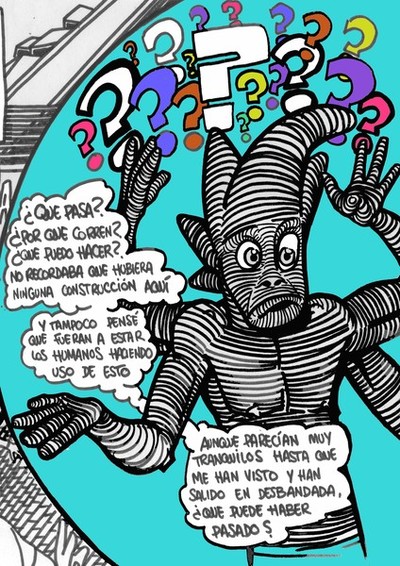 ¿QUE PASA?
¿POR QUE CORREN?
¿QUE PUEDO HACER?
NO RECORDABA QUE HUBIERA
NINGUNA CONSTRUCCIÓN AQUÍ
Y TAMPOCO PENSÉ
QUE FUERAN A ESTAR
LOS HUMANOS HACIENDO
USO DE ESTO
AUNQUE PARECÍAN MUY
TRANQUILOS HASTA QUE
ME HAN VISTO Y HAN
SALIDO EN DESBANDADA,
¿QUE PUEDE HABER
PASADO?